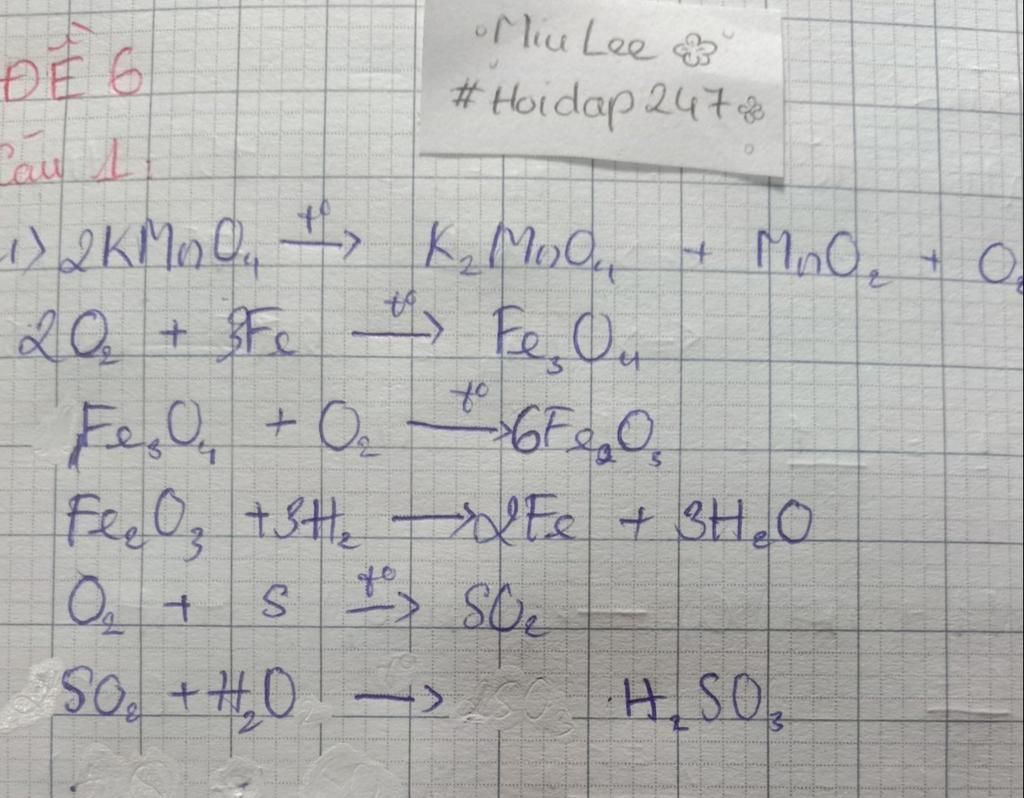 Miu Lee
#Hoidap247
ĐỀ 6
Câu 1:
1) 2KMnO₄ →(t°) K₂MnO₄ + MnO₂ + O₂
2O₂ + 3Fe →(t°) Fe₃O₄
Fe₃O₄ + O₂ →(t°) 6Fe₂O₃
Fe₂O₃ + 3H₂ → 2Fe + 3H₂O
O₂ + S →(t°) SO₂
SO₂ + H₂O → H₂SO₃